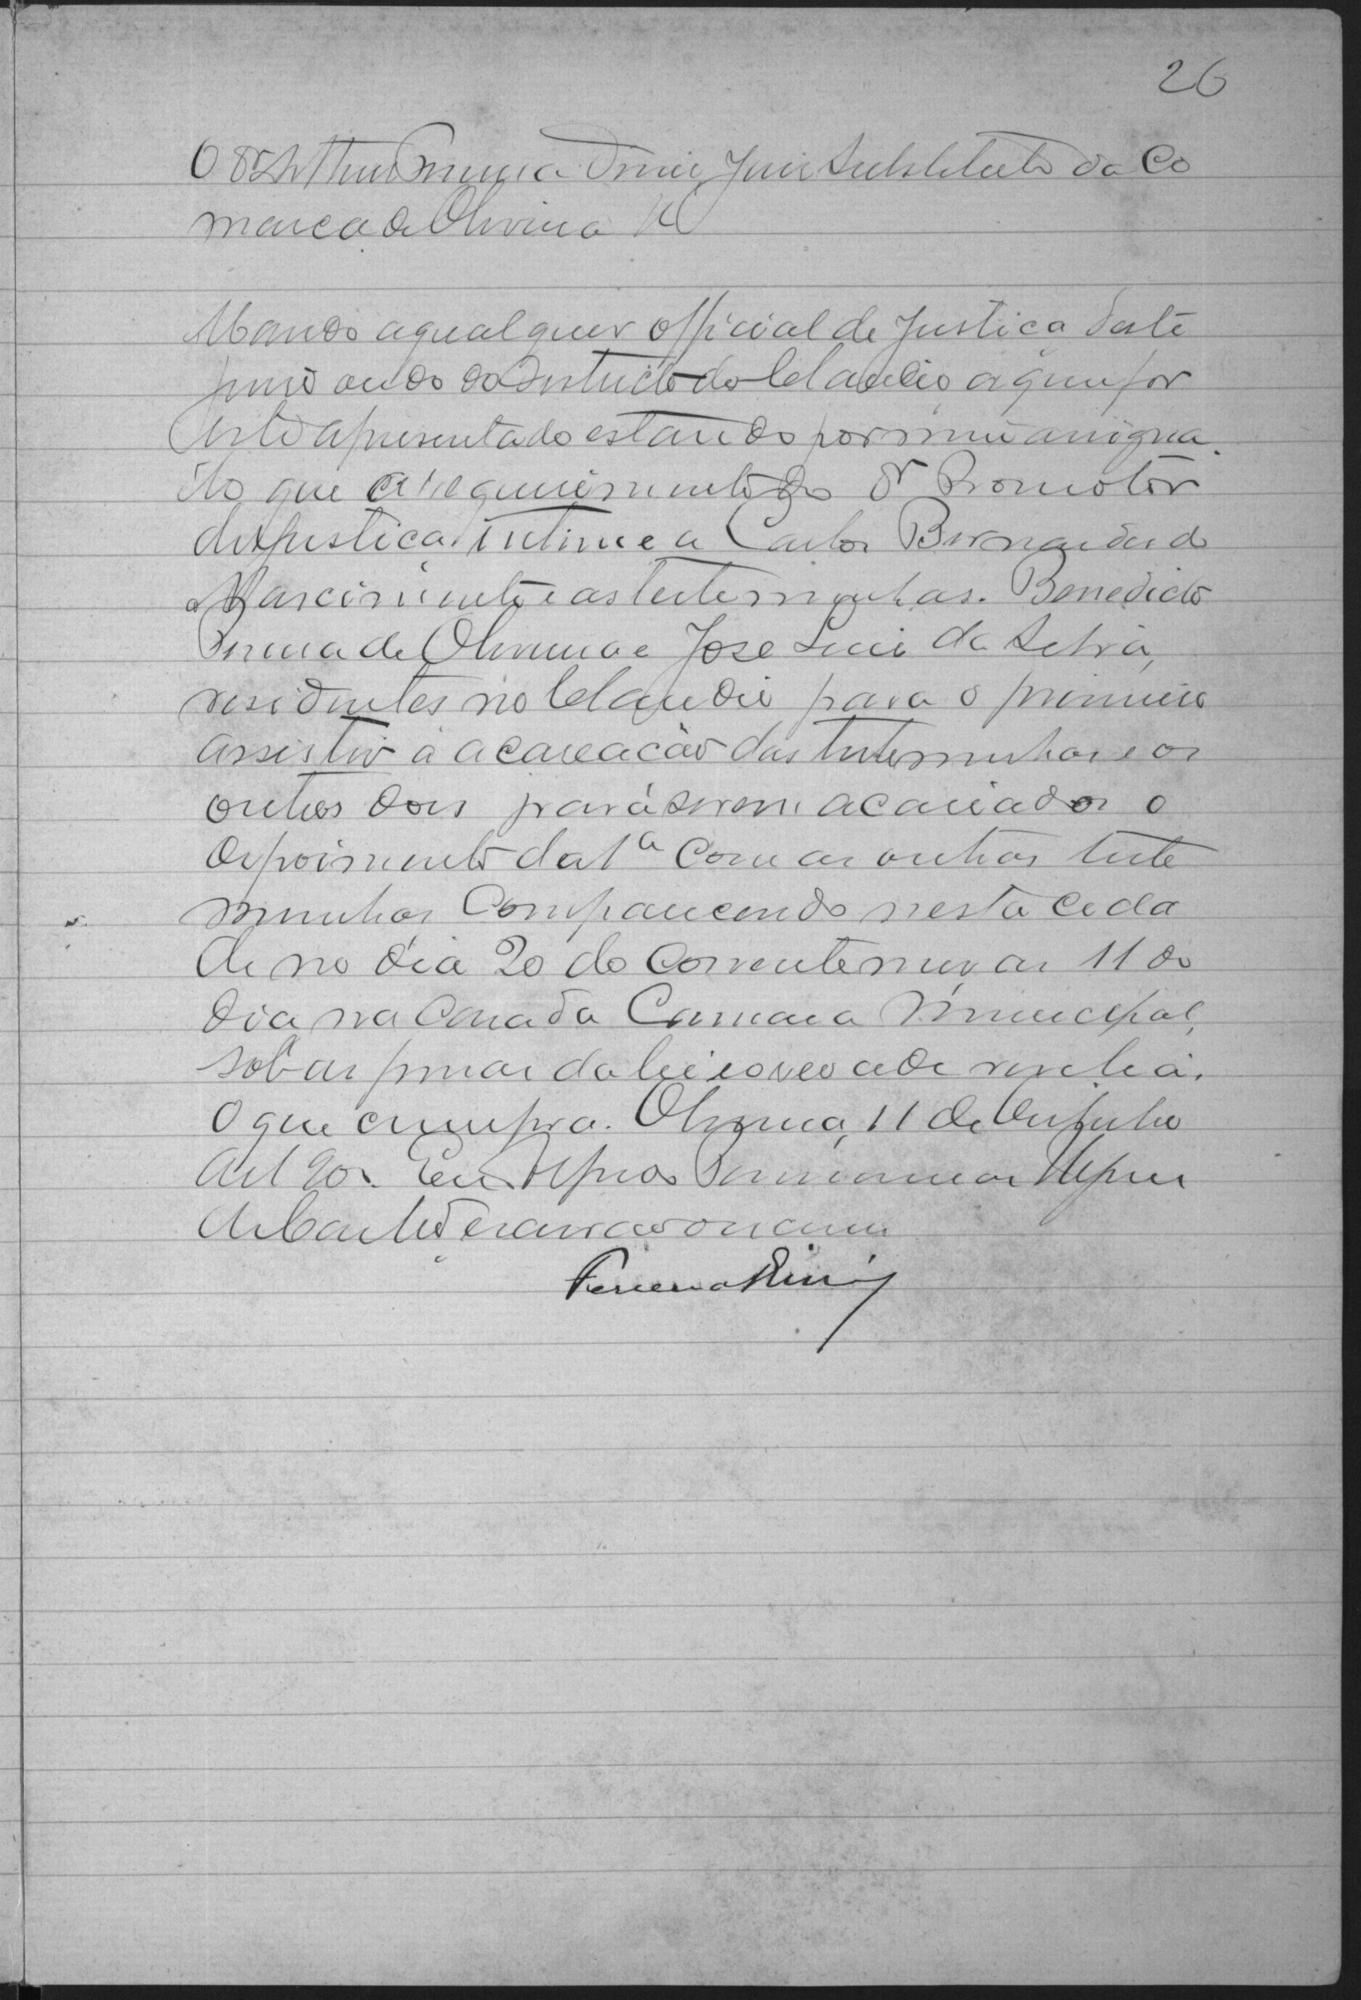 26
O Dr Arthur Pereira Diniz Juiz Substituto da Co
marca de Oliveira &
Mando a qualquer official de Justica deste
juiso ou do do Districto do Claudio a quem for
este apresentado estando por mim assigna
do que a requerimento do Dr Promotor
de Justica intime a Carlos Bernardes do
Nascimento e as testeminhas. Benedicto
Pereira de Oliveira e Jose Luis da Silva,
residentes no Claudio para o primeiro
assistir á acareacão das testeminhas e os
outros dois para serem acariados o
depoimento da 1a com as outras teste
minhas comparecendo nesta cida
de no dia 20 do corrente mez as 11 do
dia na Casa da Camara Municipal,
sob as penas da lei e o reo a de revelia.
O que cumpra. Oliveira, 11 de Outubro
de 190. Eu
de Castro escrivão
Pereira Diniz